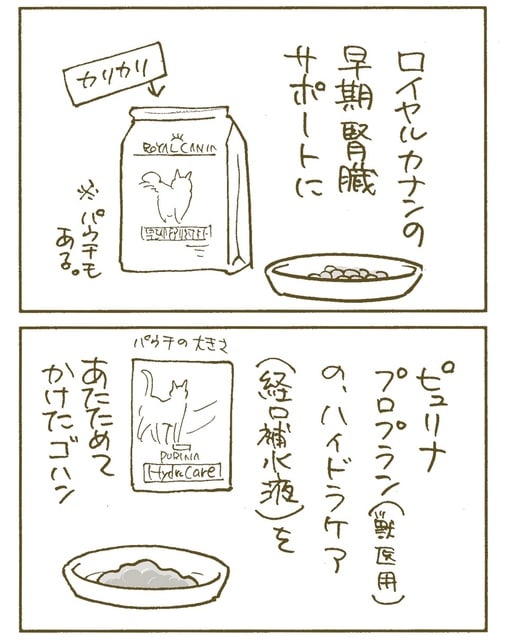 ロイヤルカナンの
早期腎臓
サポートに
カリカリ
ROYAL CANIN
※パウチも
ある。
ピュリナ
プロプラン(獣医用)
の、ハイドラケア
(経口補水液)を
パウチの大きさ
PURINA
Hydra Care
あたためて
かけたゴハン